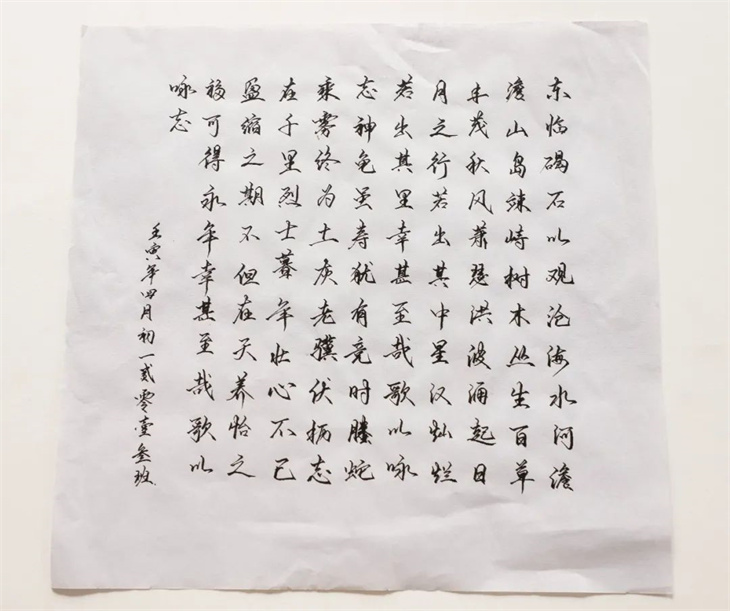 东临碣石以观沧海水河澹
澹山岛竦峙树木丛生百草
丰茂秋风萧瑟洪波涌起日
月之行若出其中星汉灿烂
若出其里幸甚至哉歌以咏
志神龟虽寿犹有竟时腾蛇
乘雾终为土灰老骥伏枥志
在千里烈士暮年壮心不已
盈缩之期不但在天养怡之
福可得永年幸甚至哉歌以
咏志
壬寅年四月初一贰零壹叁班